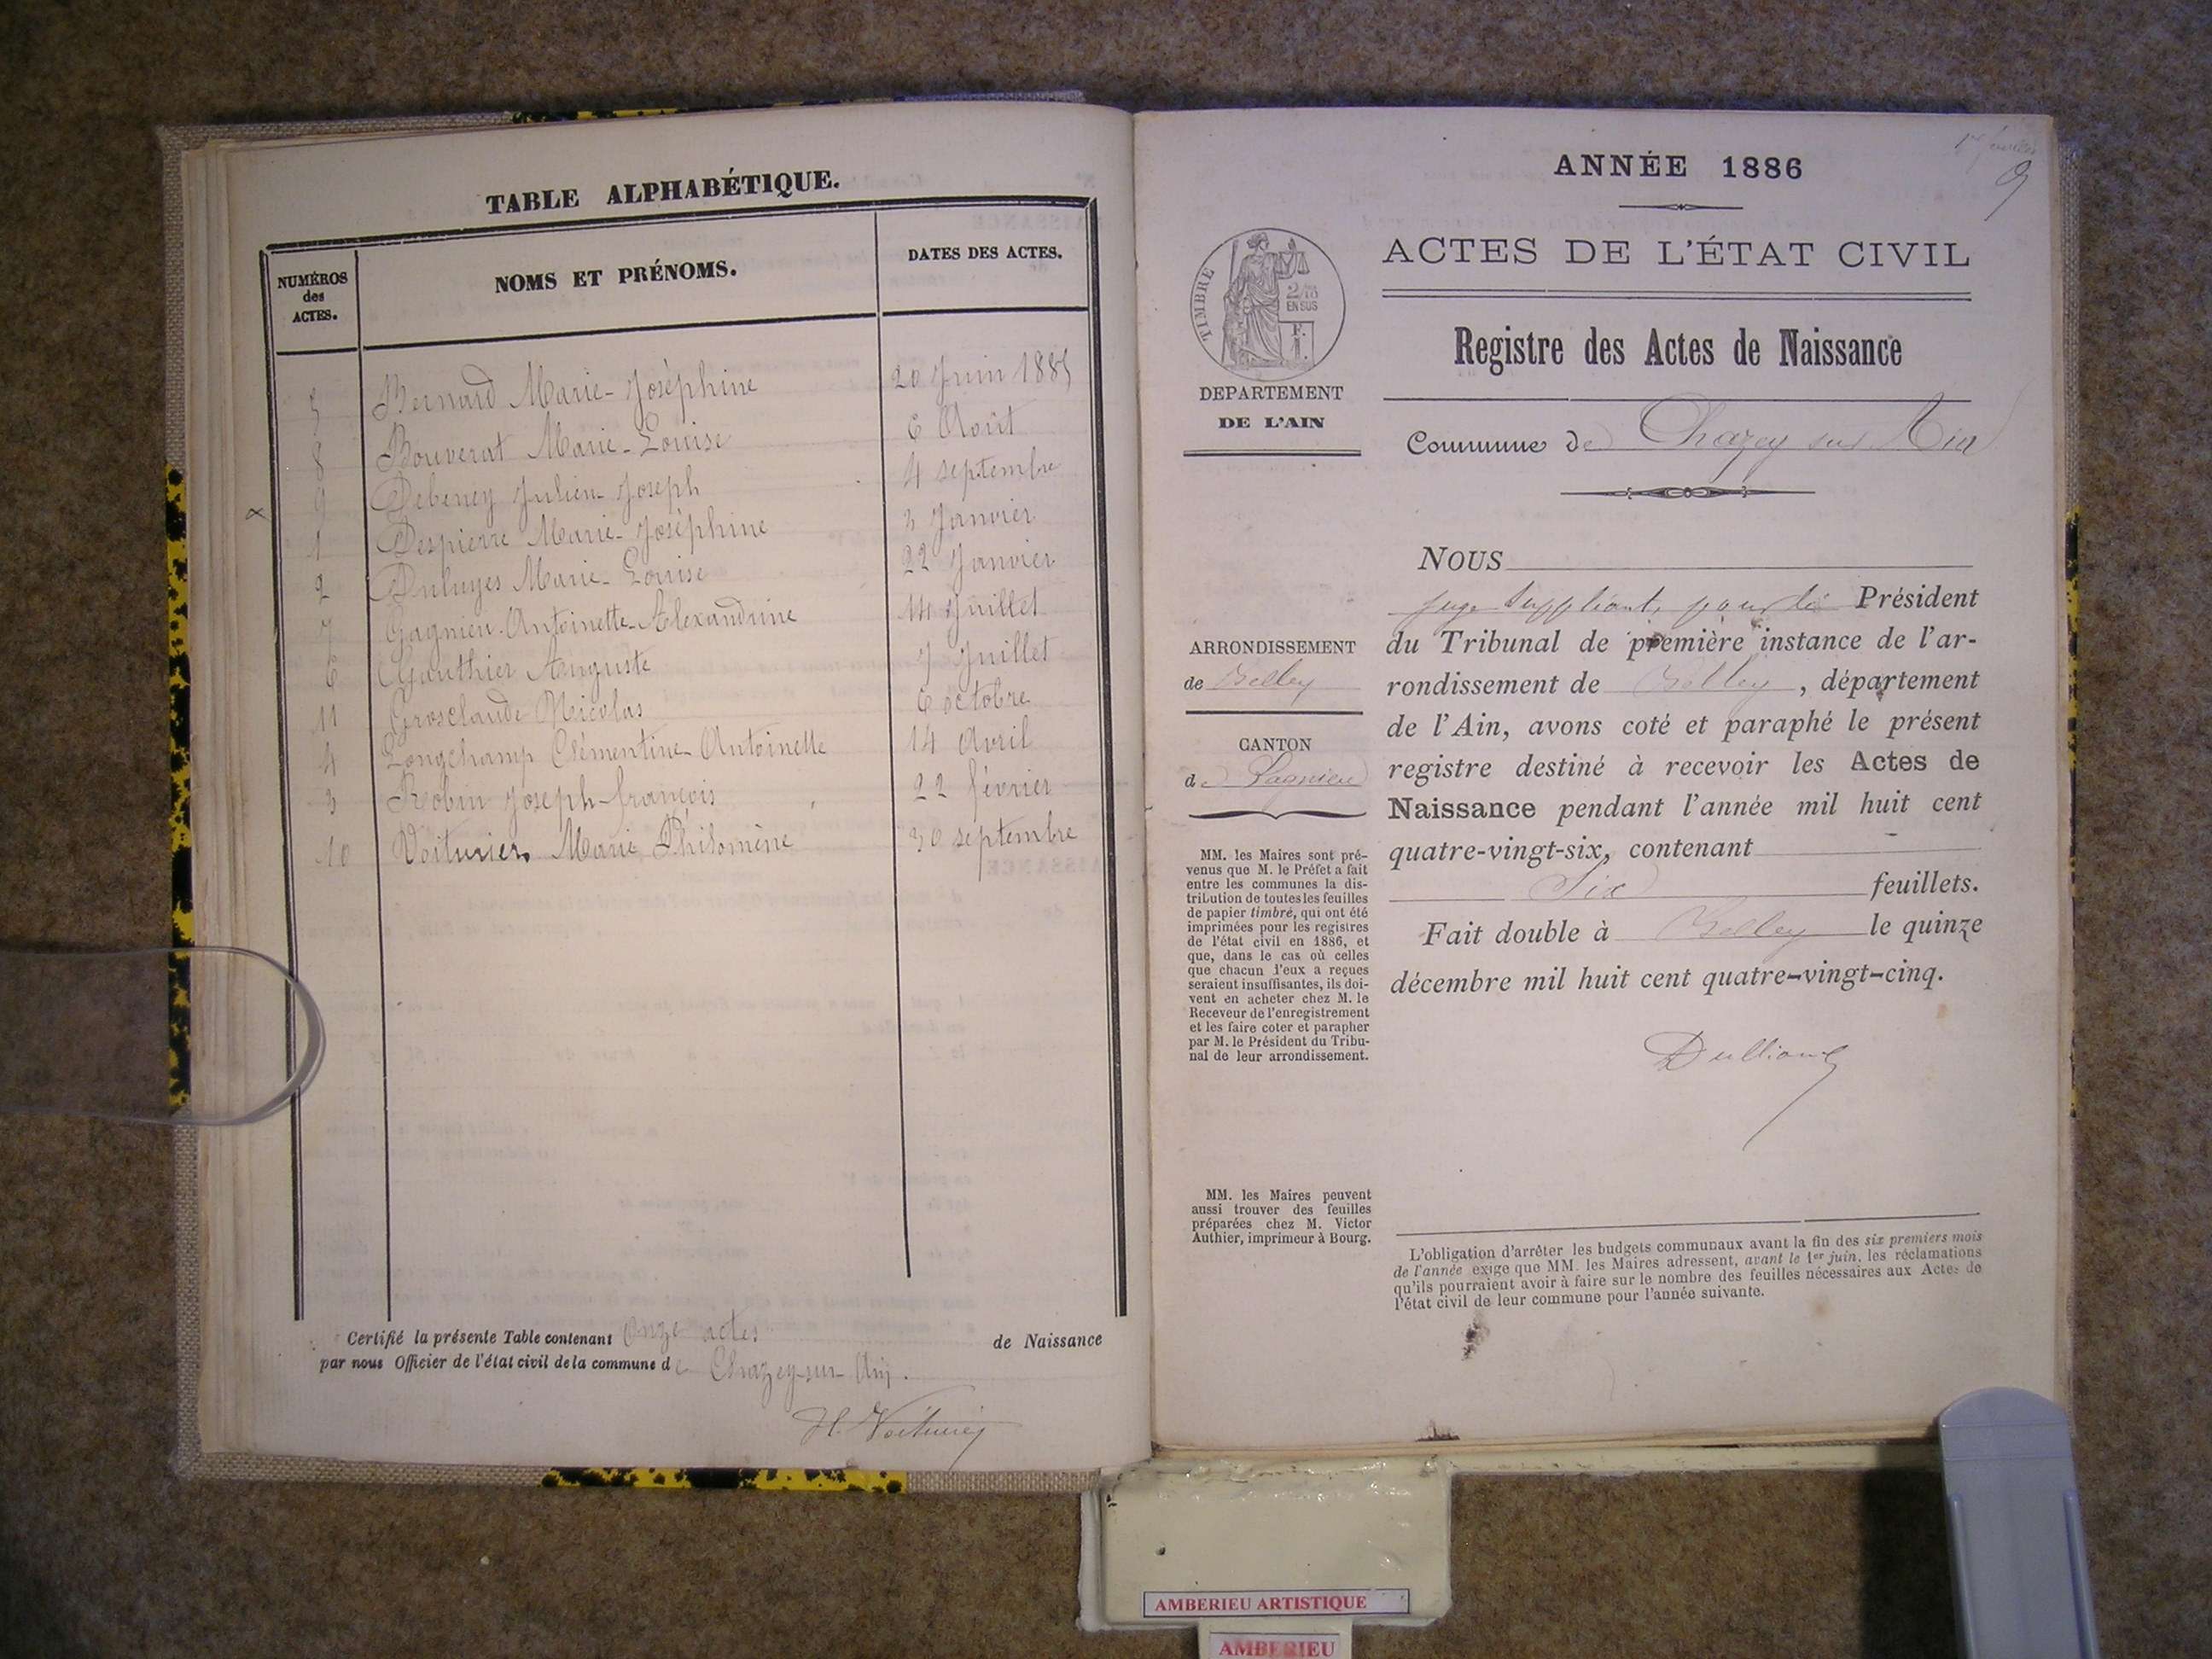 TABLE ALPHABÉTIQUE.
NUMÉROS des ACTES. NOMS ET PRÉNOMS. DATES DES ACTES.
5 Bernard Marie-Joséphine 20 Juin 1885
8 Bouverat Marie-Louise 6 Août
9 Debeney Julien-Joseph 4 septembre
1 Despierre Marie-Joséphine 3 Janvier
2 Marie-Louise 22 Janvier
7 Gagnieu Antoinette-Alexandrine 14 Juillet
6 Gauthier Auguste 7 Juillet
11 Grosclaude Nicolas 6 octobre
4 Longchamp Clémentine-Antoinette 14 Avril
3 Robin Joseph-françois 22 février
10 Voiturier Marie Philomène 30 septembre
Certifié la présente Table contenant Onze actes de Naissance
par nous Officier de l'état civil de la commune de Chazey-sur-Ain.
H. Voiturier
9
ANNÉE 1886
ACTES DE L'ÉTAT CIVIL
Registre des Actes de Naissance
Commune de Chazey sur Ain
TIMBRE
2/10 EN SUS
DEPARTEMENT
DE L'AIN
ARRONDISSEMENT
de Belley
CANTON
de Lagnieu
MM. les Maires sont pré-
venus que M. le Préfet a fait
entre les communes la dis-
tribution de toutes les feuilles
de papier timbré, qui ont été
imprimées pour les registres
de l'état civil en 1886, et
que, dans le cas où celles
que chacun d'eux a reçues
seraient insuffisantes, ils doi-
vent en acheter chez M. le
Receveur de l'enregistrement
et les faire coter et parapher
par M. le Président du Tribu-
nal de leur arrondissement.
MM. les Maires peuvent
aussi trouver des feuilles
préparées chez M. Victor
Authier, imprimeur à Bourg.
NOUS
juge suppléant, pour le Président
du Tribunal de première instance de l'ar-
rondissement de Belley, département
de l'Ain, avons coté et paraphé le présent
registre destiné à recevoir les Actes de
Naissance pendant l'année mil huit cent
quatre-vingt-six, contenant
Six feuillets.
Fait double à Belley le quinze
décembre mil huit cent quatre-vingt-cinq.
L'obligation d'arrêter les budgets communaux avant la fin des six premiers mois
de l'année exige que MM. les Maires adressent, avant le 1er juin, les réclamations
qu'ils pourraient avoir à faire sur le nombre des feuilles nécessaires aux Actes de
l'état civil de leur commune pour l'année suivante.
AMBERIEU ARTISTIQUE
AMBERIEU